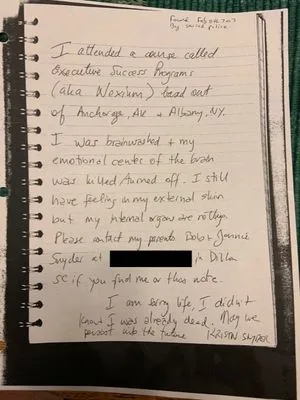 Found Feb 2003
By
I attended a course called
Executive Success Programs
(a.k.a. Nexivm) based out
of Anchorage, AK + Albany, NY.
I was brainwashed + my
emotional center of the brain
was killed/turned off. I still
have feeling in my external skin
but my internal organs are rotting.
Please contact my parents
Snyder at in Dillon
SC if you find me or this note.
I am sorry life, I didn't
know I was already dead. May we
persist into the future KRISTIN SNYDER